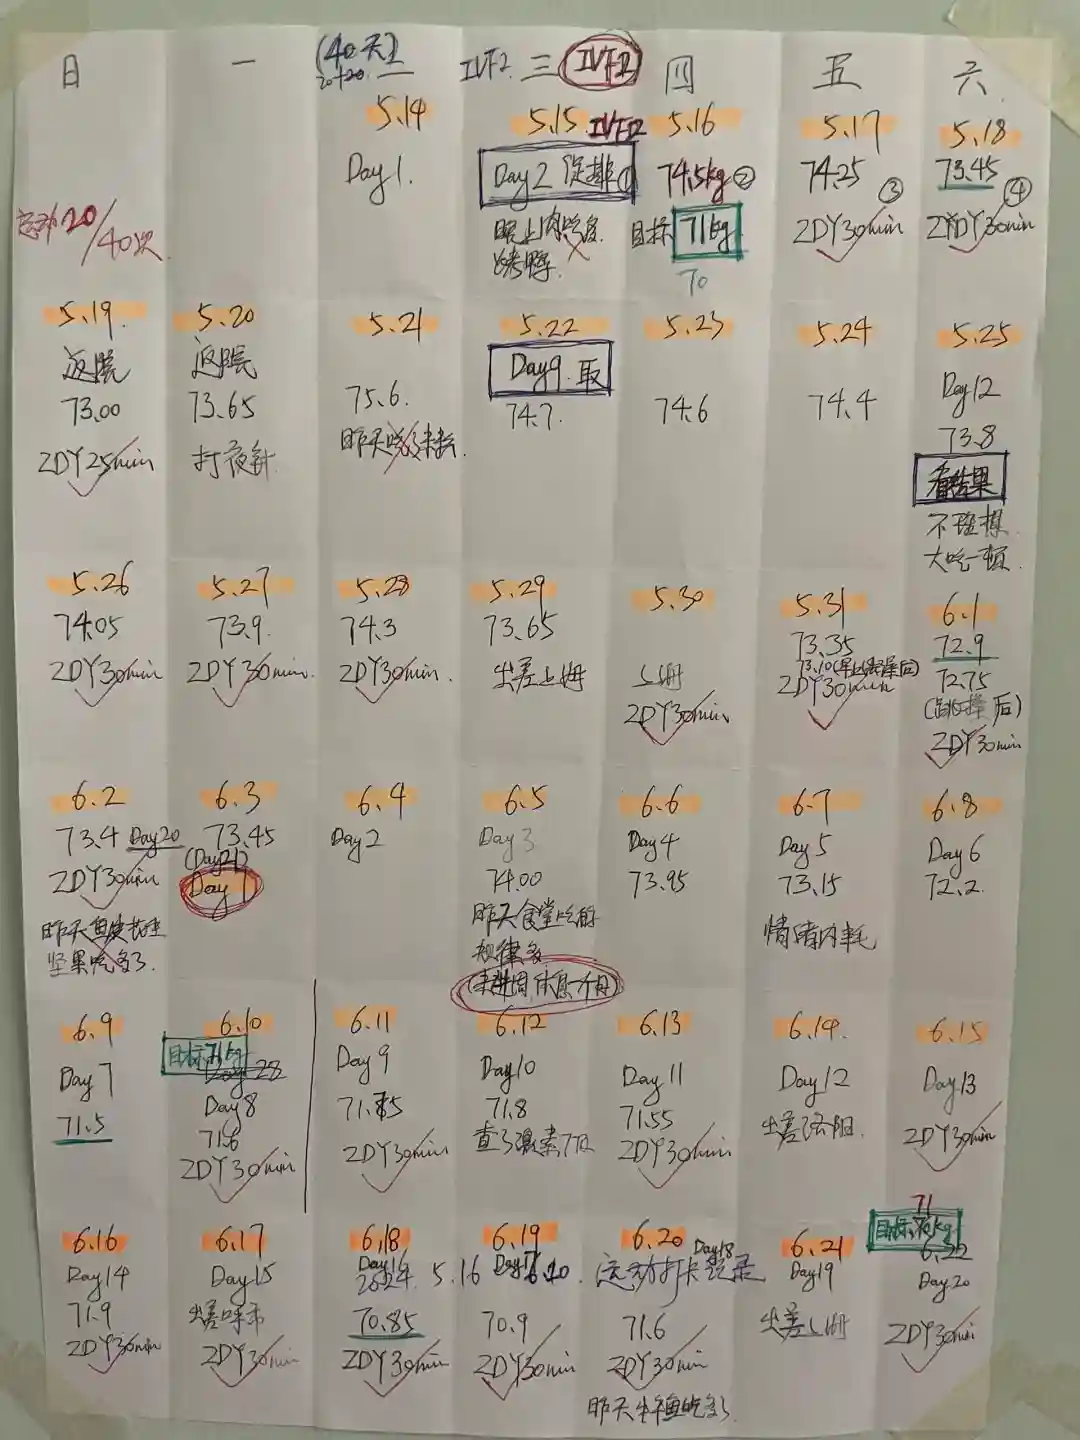 日 一 (40天) 二 IVF2. 三 IVF2 四 五 六
运动20/40次
5.14
Day 1.
5.15 IVF2
Day 2 促排①
晚上肉吃多
烤鸭.
5.16
74.5kg ②
目标 71kg
70
5.17
74.25 ③
ZDY30min
5.18
73.45 ④
ZDY30min
5.19.
返院
73.00
ZDY25min
5.20
返院
73.65
打夜针
5.21
75.6.
昨天吃多
5.22
Day9.取
74.7.
5.23
74.6
5.24
74.4
5.25
Day12
73.8
看结果
不理想.
大吃一顿.
5.26
74.05
ZDY30min
5.27
73.9.
ZDY30min.
5.28
74.3
ZDY30min.
5.29
73.65
出差上海
5.30
上海
ZDY30min.
5.31
73.35
73.10(早上跳操后)
ZDY30min
6.1
72.9
72.75
(跳操后)
ZDY30min
6.2
73.4 Day20
ZDY30min
昨天鱼皮花生
坚果吃多了.
6.3
73.45
(Day21)
Day 1
6.4
Day2
6.5
Day3
74.00
昨天食堂吃的
规律多.
(未进周.休息一个月)
6.6
Day4
73.95
6.7
Day5
73.15
情绪内耗
6.8
Day6
72.2.
6.9
Day7
71.5
6.10
目标71kg
Day 28
Day8
71.6
ZDY30min
6.11
Day9
ZDY30min
6.12
Day10
71.8
查了激素7项
6.13
Day11
71.55
ZDY30min
6.14.
Day12
出差洛阳.
6.15
Day13
ZDY30min
6.16
Day14
71.9
ZDY30min
6.17
Day15
出差呼市
ZDY30min
6.18
Day16
70.85
ZDY30min
6.19
Day17
70.9
ZDY30min
2024. 5.16 6.20. 运动打卡记录
6.20 Day18
71.6
ZDY30min
昨天牛福吃多了.
6.21
Day19
出差上海
71
目标:70kg
6.22
Day20
ZDY30min